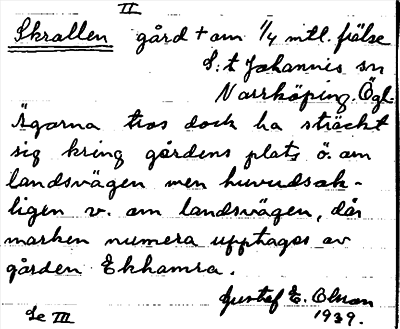 II
Skrallen gård + om 1/4 mtl. frälse
S:t Johannis sn
Norrköping. Ögl.
Ägorna tros dock ha sträckt
sig kring gårdens plats ö. om
landsvägen men huvudsak-
ligen v. om landsvägen, där
marken numera upptages av
gården Ekhamra.
Gustaf E. Olsson
Se III 1939.